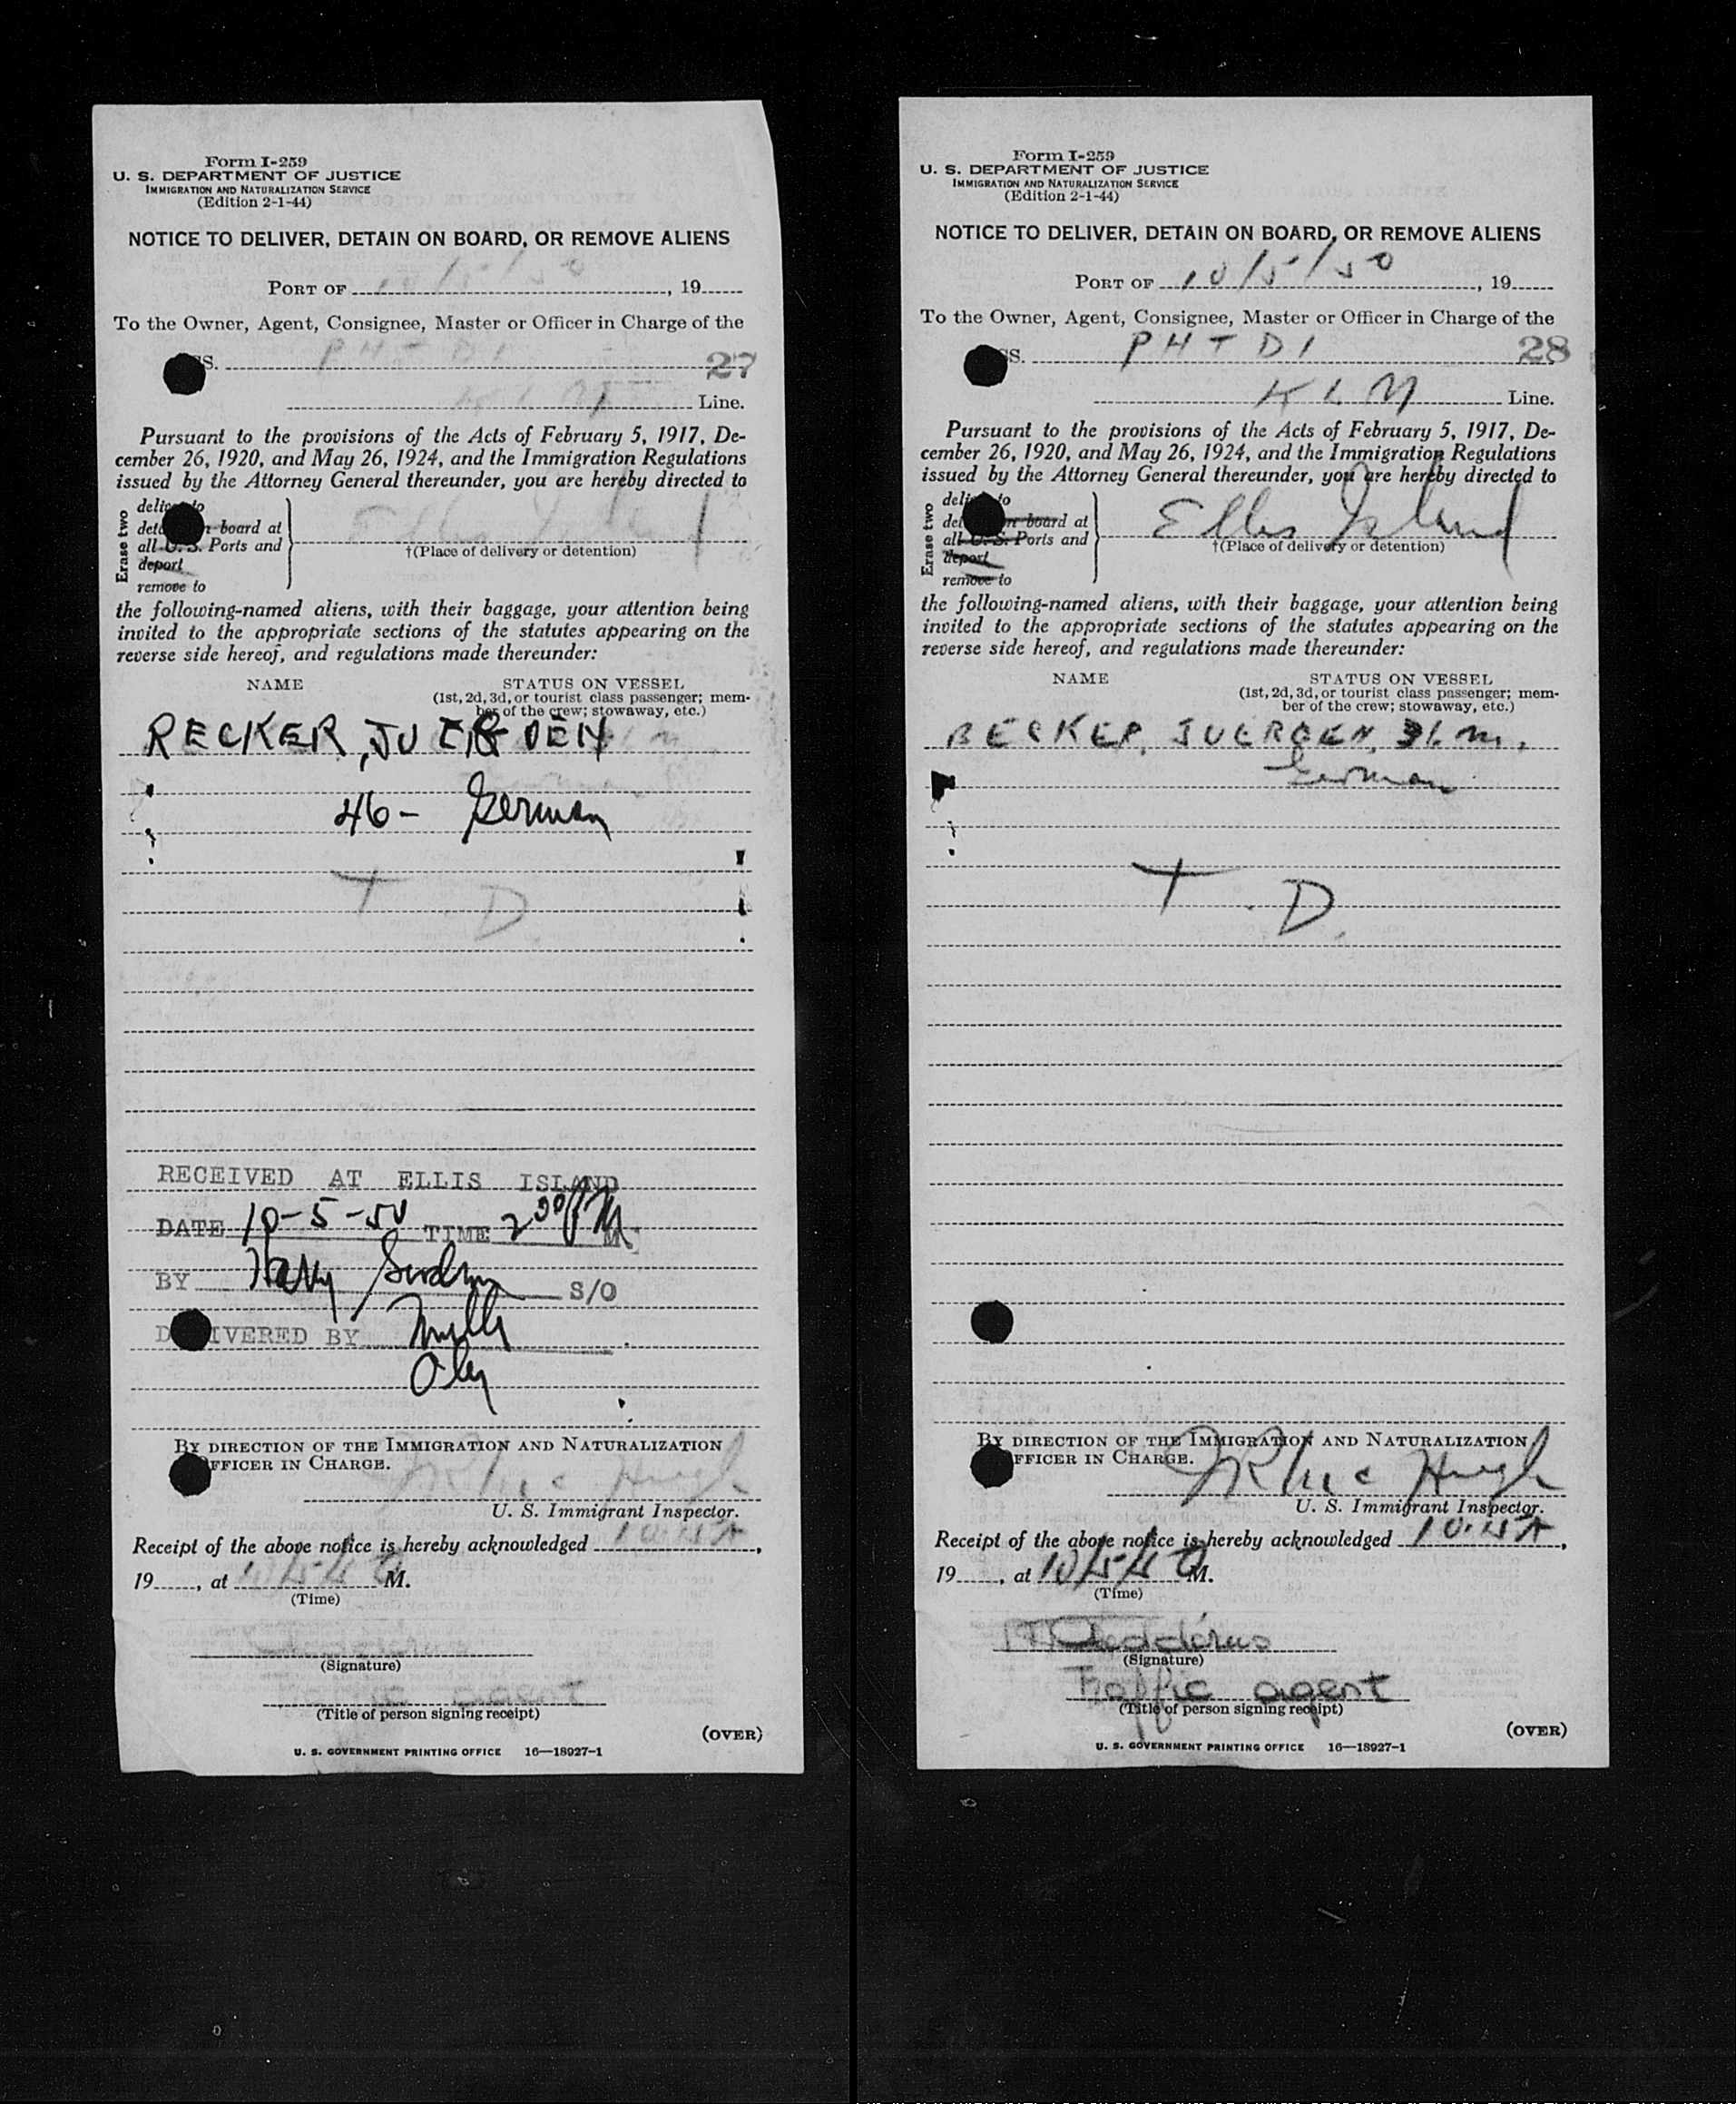 Form I-259
U. S. DEPARTMENT OF JUSTICE
IMMIGRATION AND NATURALIZATION SERVICE
(Edition 2-1-44)
NOTICE TO DELIVER, DETAIN ON BOARD, OR REMOVE ALIENS
PORT OF 10/5/50, 19
To the Owner, Agent, Consignee, Master or Officer in Charge of the
SS. PH-TDI 27
KLM Line.
Pursuant to the provisions of the Acts of February 5, 1917, De-
cember 26, 1920, and May 26, 1924, and the Immigration Regulations
issued by the Attorney General thereunder, you are hereby directed to
Erase two
deliver to
detain on board at
all U. S. Ports and
deport
remove to
Ellis Island
†(Place of delivery or detention)
the following-named aliens, with their baggage, your attention being
invited to the appropriate sections of the statutes appearing on the
reverse side hereof, and regulations made thereunder:
NAME STATUS ON VESSEL
(1st, 2d, 3d, or tourist class passenger; mem-
ber of the crew; stowaway, etc.)
RECKER, JUERGEN
46 - German
T. D.
RECEIVED AT ELLIS ISLAND
DATE 10-5-50 TIME 2 30 PM M.
BY Harry S/O
DELIVERED BY
BY DIRECTION OF THE IMMIGRATION AND NATURALIZATION
OFFICER IN CHARGE.
McHugh
U. S. Immigrant Inspector.
Receipt of the above notice is hereby acknowledged
19, at M.
(Time)
(Signature)
Traffic agent
(Title of person signing receipt)
(OVER)
U. S. GOVERNMENT PRINTING OFFICE 16—18927-1
Form I-259
U. S. DEPARTMENT OF JUSTICE
IMMIGRATION AND NATURALIZATION SERVICE
(Edition 2-1-44)
NOTICE TO DELIVER, DETAIN ON BOARD, OR REMOVE ALIENS
PORT OF 10/5/50, 19
To the Owner, Agent, Consignee, Master or Officer in Charge of the
SS. PH TDI 28
KLM Line.
Pursuant to the provisions of the Acts of February 5, 1917, De-
cember 26, 1920, and May 26, 1924, and the Immigration Regulations
issued by the Attorney General thereunder, you are hereby directed to
Erase two
deliver to
detain on board at
all U. S. Ports and
deport
remove to
Ellis Island
†(Place of delivery or detention)
the following-named aliens, with their baggage, your attention being
invited to the appropriate sections of the statutes appearing on the
reverse side hereof, and regulations made thereunder:
NAME STATUS ON VESSEL
(1st, 2d, 3d, or tourist class passenger; mem-
ber of the crew; stowaway, etc.)
BECKER, JUERGEN, m.
German
T. D.
BY DIRECTION OF THE IMMIGRATION AND NATURALIZATION
OFFICER IN CHARGE.
McHugh
U. S. Immigrant Inspector.
Receipt of the above notice is hereby acknowledged
19, at M.
(Time)
(Signature)
Traffic agent
(Title of person signing receipt)
(OVER)
U. S. GOVERNMENT PRINTING OFFICE 16—18927-1